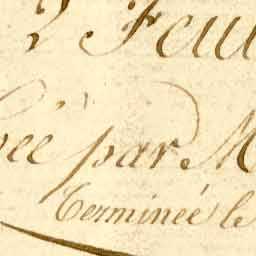 2 Feu
ée par M
Terminée le